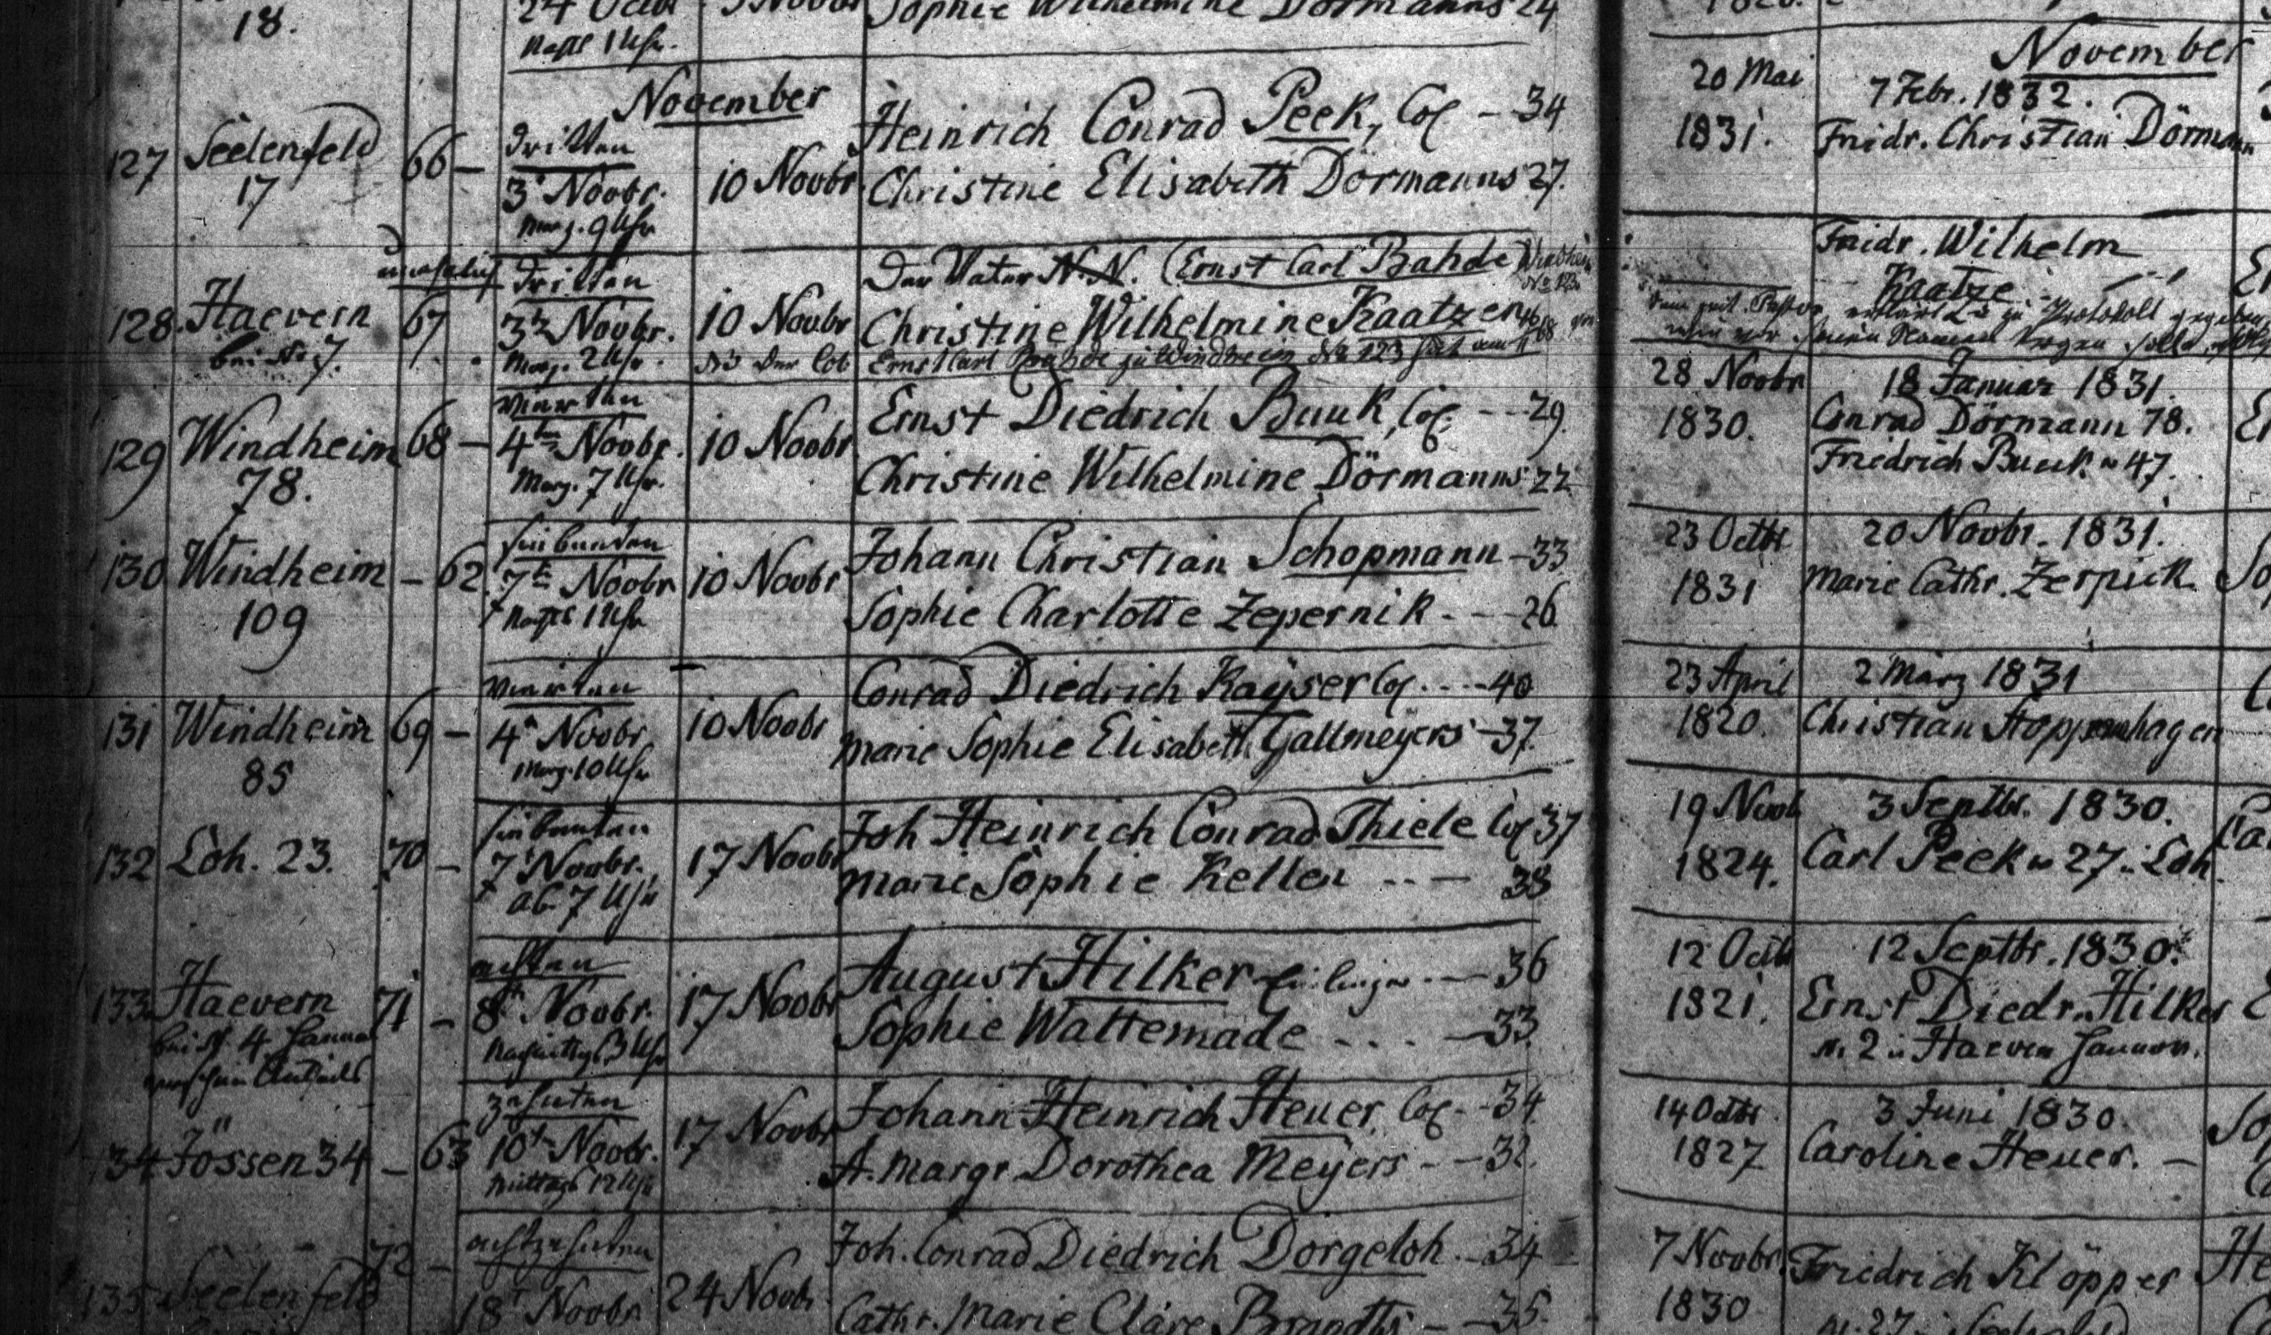 18.
24 Octbr
Sophie Wilhelmine Dörmanns 24
Nachts 1 Uhr.
November
127 Seelenfeld 66 – dritten
17
3t Novbr.
Morg. 9 Uhr
10 Novbr.
Heinrich Conrad Peek, Col – 34
Christine Elisabeth Dörmanns 27.
unehelich
128. Haevern 67 dritten
bei Nr. 7.
3t Novbr.
Morg. 2 Uhr.
10 Novbr
Der Vater N. N. (Ernst Carl Bahde) Windheim
No 123
Christine Wilhelmine Kaatzen
Ernst Carl Bahde zu Windheim No 123 hat am
129 Windheim 68 – vierten
78.
4ten Novbr.
Morg. 7 Uhr.
10 Novbr
Ernst Diedrich Buuk, Col. – 29.
Christine Wilhelmine Dörmanns 22
130 Windheim – 62 siebenden
109
7t Novbr
Nachts 1 Uhr
10 Novbr
Johann Christian Schopmann – 33
Sophie Charlotte Zepernik – 26
131 Windheim 69 – vierten
85
4t Novbr
Morg. 10 Uhr
10 Novbr
Conrad Diedrich Kayser Col. – 40
Marie Sophie Elisabeth Gallmeyers – 37.
132 Loh. 23. 70 – siebenten
7t Novbr.
Ab 7 Uhr
17 Novbr
Joh Heinrich Conrad Thiele Col 37
Marie Sophie Kellen – 38
133 Haevern 71 – achten
bei Nr. 4
8t Novbr.
Nachmittgs 3 Uhr
17 Novbr
August Hilker – 36
Sophie Waltemade – 33.
134 Jössen 34 – 63 zehnten
10t Novbr.
Mittags 12 Uhr
17 Novbr
Johann Heinrich Heuer, Col. – 34
A. Margr Dorothea Meyers – 32.
135 Seelenfeld 72 – achtzehnten
18t Novbr
24 Novbr
Joh. Conrad Diedrich Dorgeloh – 34
Cathr. Marie Clare Brandts – 35.
November
20 Mai
1831.
7 Febr. 1832.
Fridr. Christian Dörmann
Fridr. Wilhelm
Kaatze
28 Novbr
1830.
18 Januar 1831
Conrad Dörmann 78.
Friedrich Buuk 47.
23 Octbr
1831
20 Novbr. 1831.
Marie Cathr. Zerpick
23 April
1820.
2 März 1831
Christian Hoppenhagen
19 Novb
1824.
3 Septbr. 1830.
Carl Peek 27 Loh
12 Octb
1821.
12 Septbr. 1830.
Ernst Diedr. Hilker
n. 2 in Haevern
14 Octbr
1827
3 Juni 1830.
Caroline Heuer. –
7 Novbr.
1830
Friedrich Klöpper